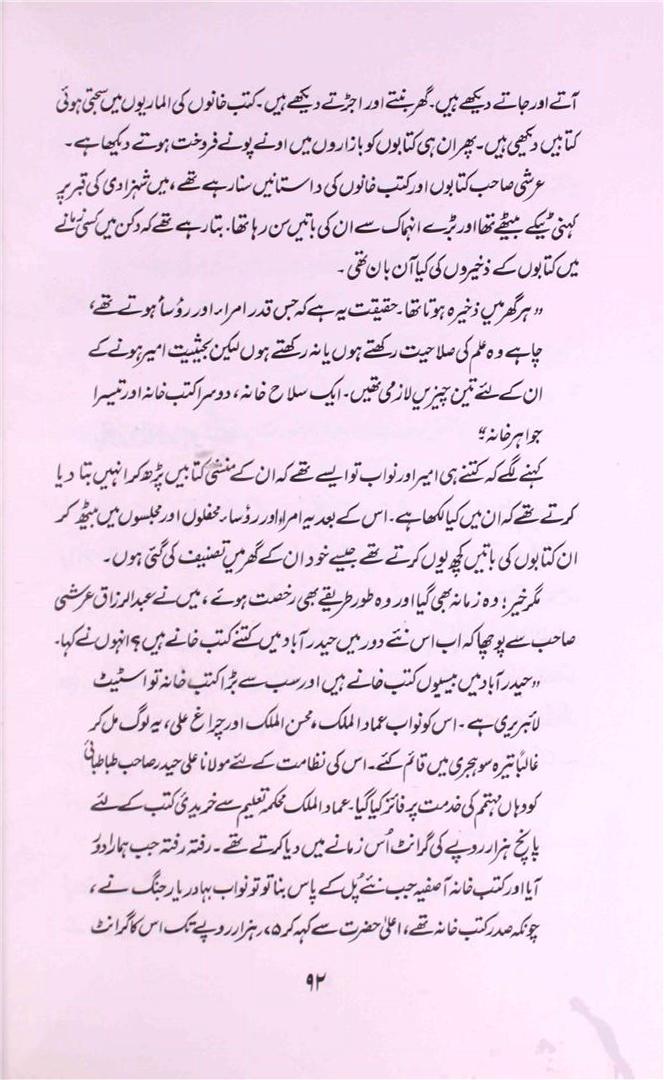 آتے اور جاتے دیکھے ہیں۔ گھر بنتے اور اجڑتے دیکھے ہیں۔ کتب خانوں کی الماریوں میں سجتی ہوئی
کتابیں دیکھی ہیں۔ پھر ان ہی کتابوں کو بازاروں میں اونے پونے فروخت ہوتے دیکھا ہے۔
عرشی صاحب کتابوں اور کتب خانوں کی داستانیں سنا رہے تھے، میں شہزادی کی قبر پر
کہنی ٹیکے بیٹھے تھا اور بڑے انہماک سے ان کی باتیں سن رہا تھا۔ بتا رہے تھے کہ دکن میں کسی زمانے
میں کتابوں کے ذخیروں کی کیا آن بان تھی۔
”ہر گھر میں ذخیرہ ہوتا تھا۔ حقیقت یہ ہے کہ جس قدر امراء اور رؤسأ ہوتے تھے،
چاہے وہ علم کی صلاحیت رکھتے ہوں یا نہ رکھتے ہوں لیکن بحیثیت امیر ہونے کے
ان کے لئے تین چیزیں لازمی تھیں۔ ایک سلاح خانہ، دوسرا کتب خانہ اور تیسرا
جواہر خانہ“
کہنے لگے کہ کتنے ہی امیر اور نواب تو ایسے تھے کہ ان کے منشی کتابیں پڑھ کر انہیں بتا دیا
کرتے تھے کہ ان میں کیا لکھا ہے۔ اس کے بعد یہ امراء اور رؤساء محفلوں اور مجلسوں میں بیٹھ کر
ان کتابوں کی باتیں کچھ یوں کرتے تھے جیسے خود ان کے گھر میں تصنیف کی گئی ہوں۔
مگر خیر؛ وہ زمانہ بھی گیا اور وہ طور طریقے بھی رخصت ہوئے، میں نے عبدالرزاق عرشی
صاحب سے پوچھا کہ اب اس نئے دور میں حیدر آباد میں کتنے کتب خانے ہیں؟ انہوں نے کہا۔
”حیدر آباد میں بیسیوں کتب خانے ہیں اور سب سے بڑا کتب خانہ تو اسٹیٹ
لائبریری ہے۔ اس کو نواب عماد الملک، محسن الملک اور چراغ علی، یہ لوگ مل کر
غالباً تیرہ سو ہجری میں قائم کئے۔ اس کی نظامت کے لئے مولانا علی حیدر صاحب طباطبائی
کو وہاں مہتمم کی خدمت پر فائز کیا گیا۔ عماد الملک محکمہ تعلیم سے خریدیٔ کتب کے لئے
پانچ ہزار روپے کی گرانٹ اُس زمانے میں دیا کرتے تھے۔ رفتہ رفتہ جب ہمارا دَور
آیا اور کتب خانہ آصفیہ جب نئے پُل کے پاس بنا تو تو نواب بہادر یار جنگ نے،
چونکہ صدر کتب خانہ تھے، اعلیٰ حضرت سے کہہ کر ۷۵ ہزار روپے تک اس کا گرانٹ
۹۲